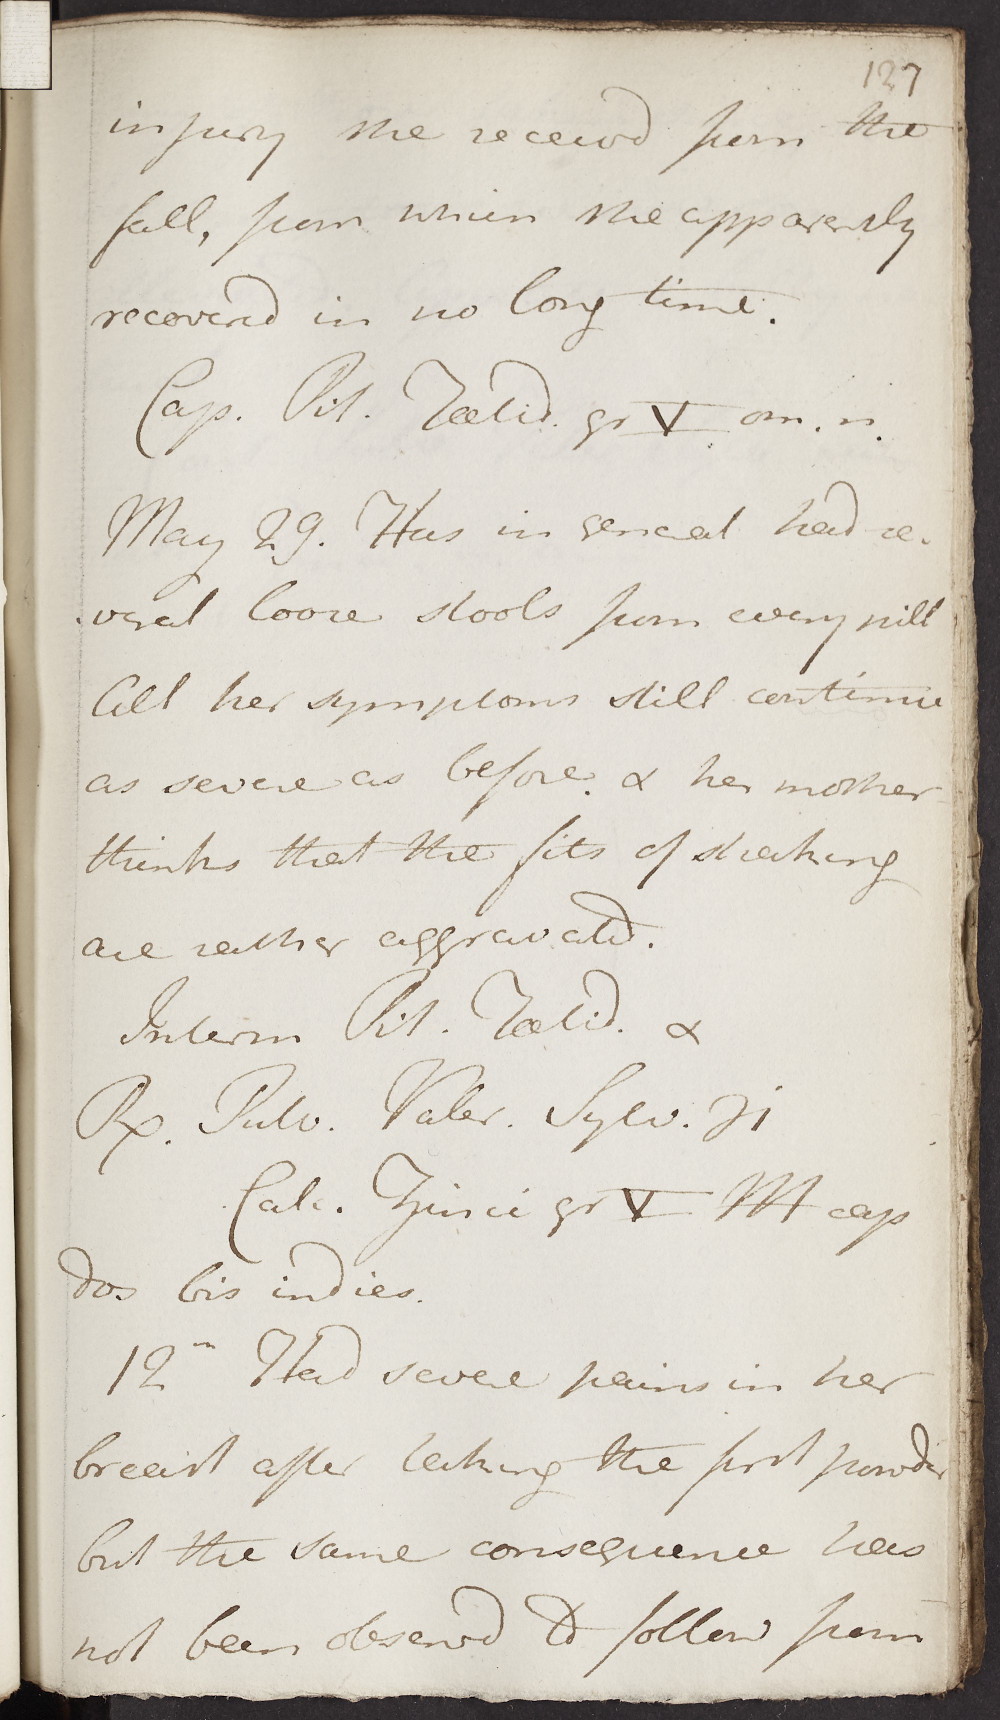 127
injury she receivd from the
fall, from which she apparently
recoverd in no long time.
Cap. Pil. Foetid. gr V om. n.
May 29. Has in general had se-
veral loose stools from every pill
All her symptoms still continue
as severe as before. & her mother
thinks that the fits of shaking
are rather aggravated.
Interm Pil. Foetid. &
Rx. Pulv. Valer. Sylv. ℈i
Calc. Zinci gr V M cap
dos bis indies.
12m Had severe pains in her
breast after taking the first powder
but the same consequence has
not been observd to follow from